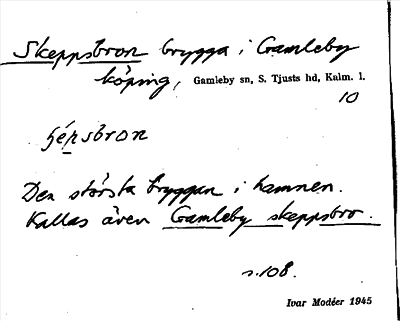 Skeppsbron brygga i Gamleby
köping, Gamleby sn, S. Tjusts hd, Kalm. l.
10
ʃépsbron
Den största bryggan i hamnen.
Kallas även Gamleby skeppsbro.
s.108.
Ivar Modéer 1945